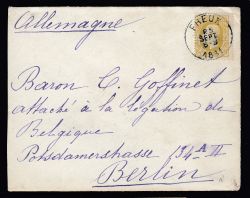 Allemagne
FREUX
SEPT
Baron C. Goffinet
attaché à la légation de
Belgique
Potsdamerstrasse 134A II
Berlin